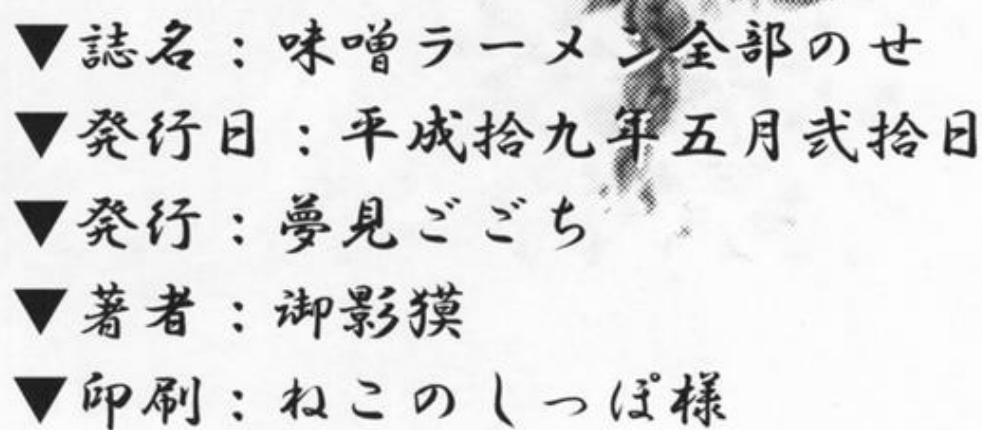 ▼誌名：味噌ラーメン全部のせ
▼発行日：平成拾九年五月弐拾日
▼発行：夢見ごごち
▼著者：御影獏
▼印刷：ねこのしっぽ様